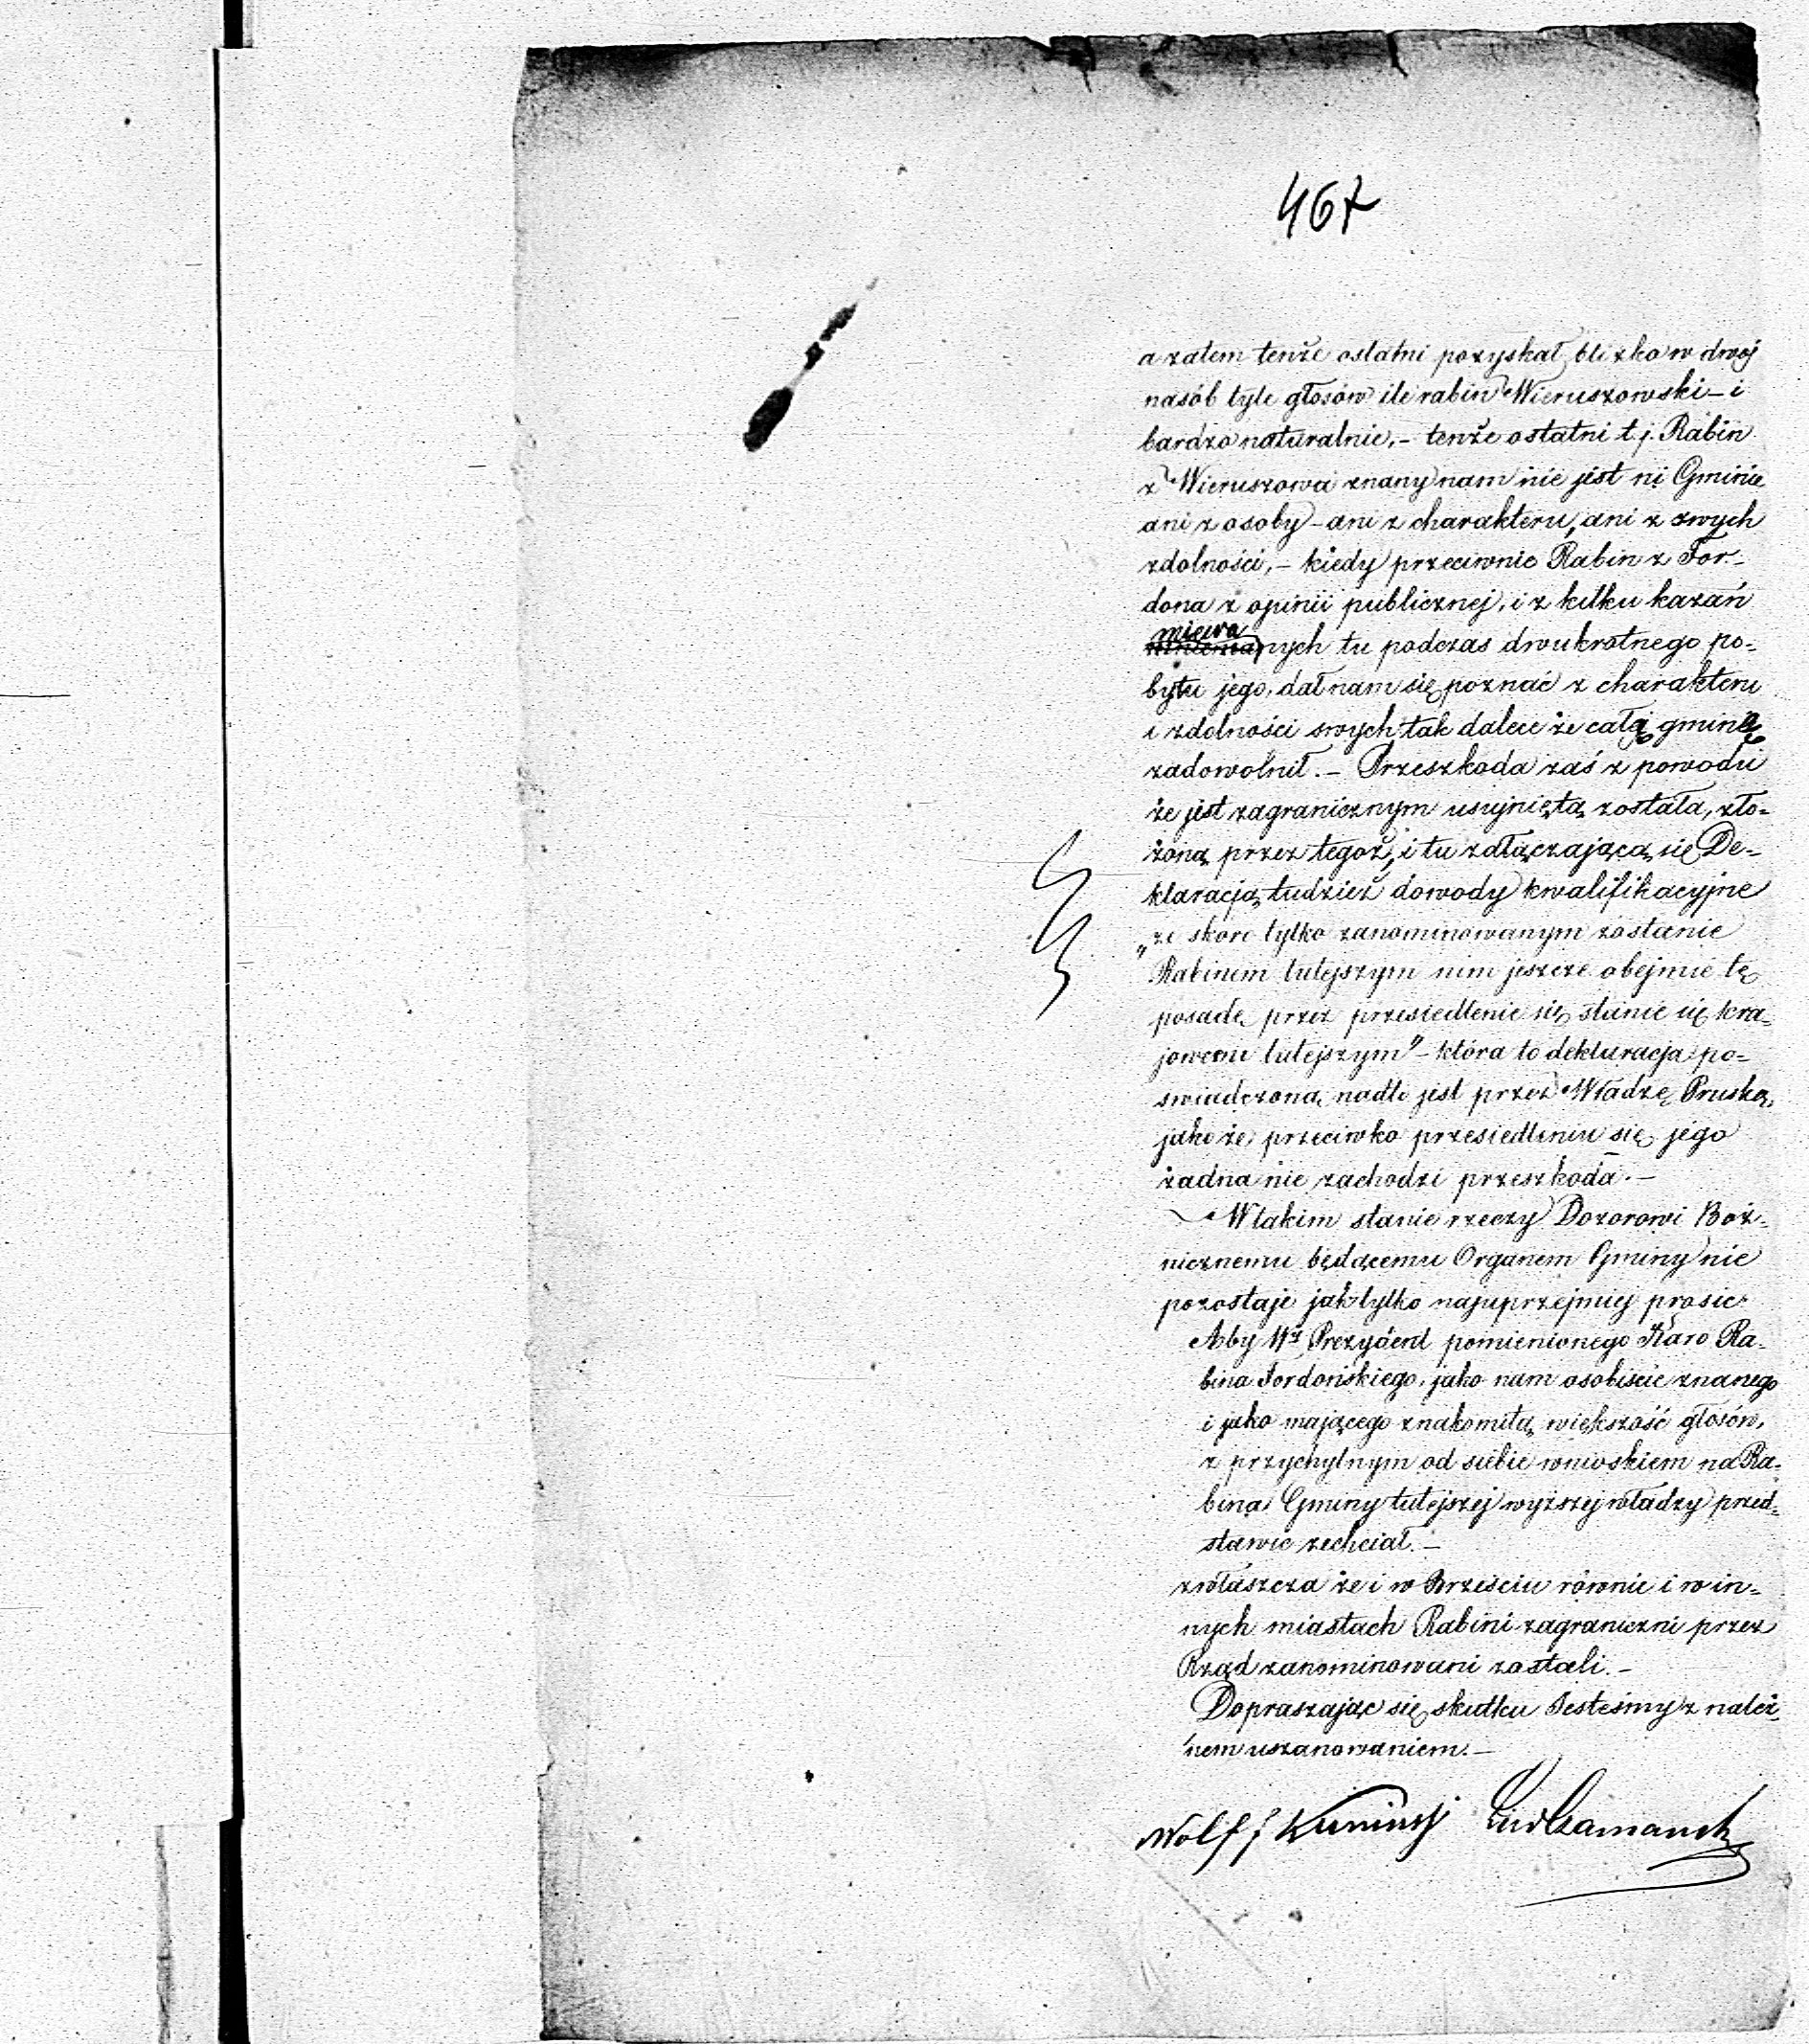 467
a zatem tenże ostatni pozyskał blizko w dwój
nasób tyle głosów ile rabin Wieruszowski – i
bardzo naturalnie, – tenże ostatni t. j. Rabin
z Wieruszowa znany nam nie jest ni Gminie
ani z osoby – ani z charakteru, ani z swych
zdolności, – kiedy przeciwnie Rabin z For-
dona z opinii publicznej, i z kilku kazań
miewanych tu podczas dwukrotnego po-
bytu jego, dał nam się poznać z charakteru
i zdolności swych tak dalece że całą gminę
zadowolnił. – Przeszkoda zaś z powodu
że jest zagranicznym usujniętą została, zło-
żoną przez tegoż, i tu załączającą się De-
klaracją tudzież dowody kwalifikacyjne
„że skoro tylko zanominowanym zostanie
Rabinem tutejszym nim jeszcze obejmie tę
posadę przez przesiedlenie się stanie się kra-
jowcem tutejszym" – która to deklaracja po-
swiadczoną nadto jest przez Władzę Pruską,
jako że przeciwko przesiedleniu się jego
żadna nie zachodzi przeszkoda. –
W takim stanie rzeczy Dozorowi Boż-
nicznemu będącemu Organem Gminy nie
pozostaje jak tylko najuprzejmiej prosić
Aby Wy Prezydent pomienionego Karo Ra-
bina Fordońskiego, jako nam osobiscie znanego
i jako mającego znakomitą większość głosów,
z przychylnym od siebie wnioskiem na Ra-
bina Gminy tutejszej wyższej władzy przed-
stawic zechciał. –
zwłaszcza że i w Brześciu równie i w in-
nych miastach Rabini zagraniczni przez
Rząd zanominowani zostali. –
Dopraszając się skutku Jesteśmy z należ-
nem uszanowaniem. –
Wolff